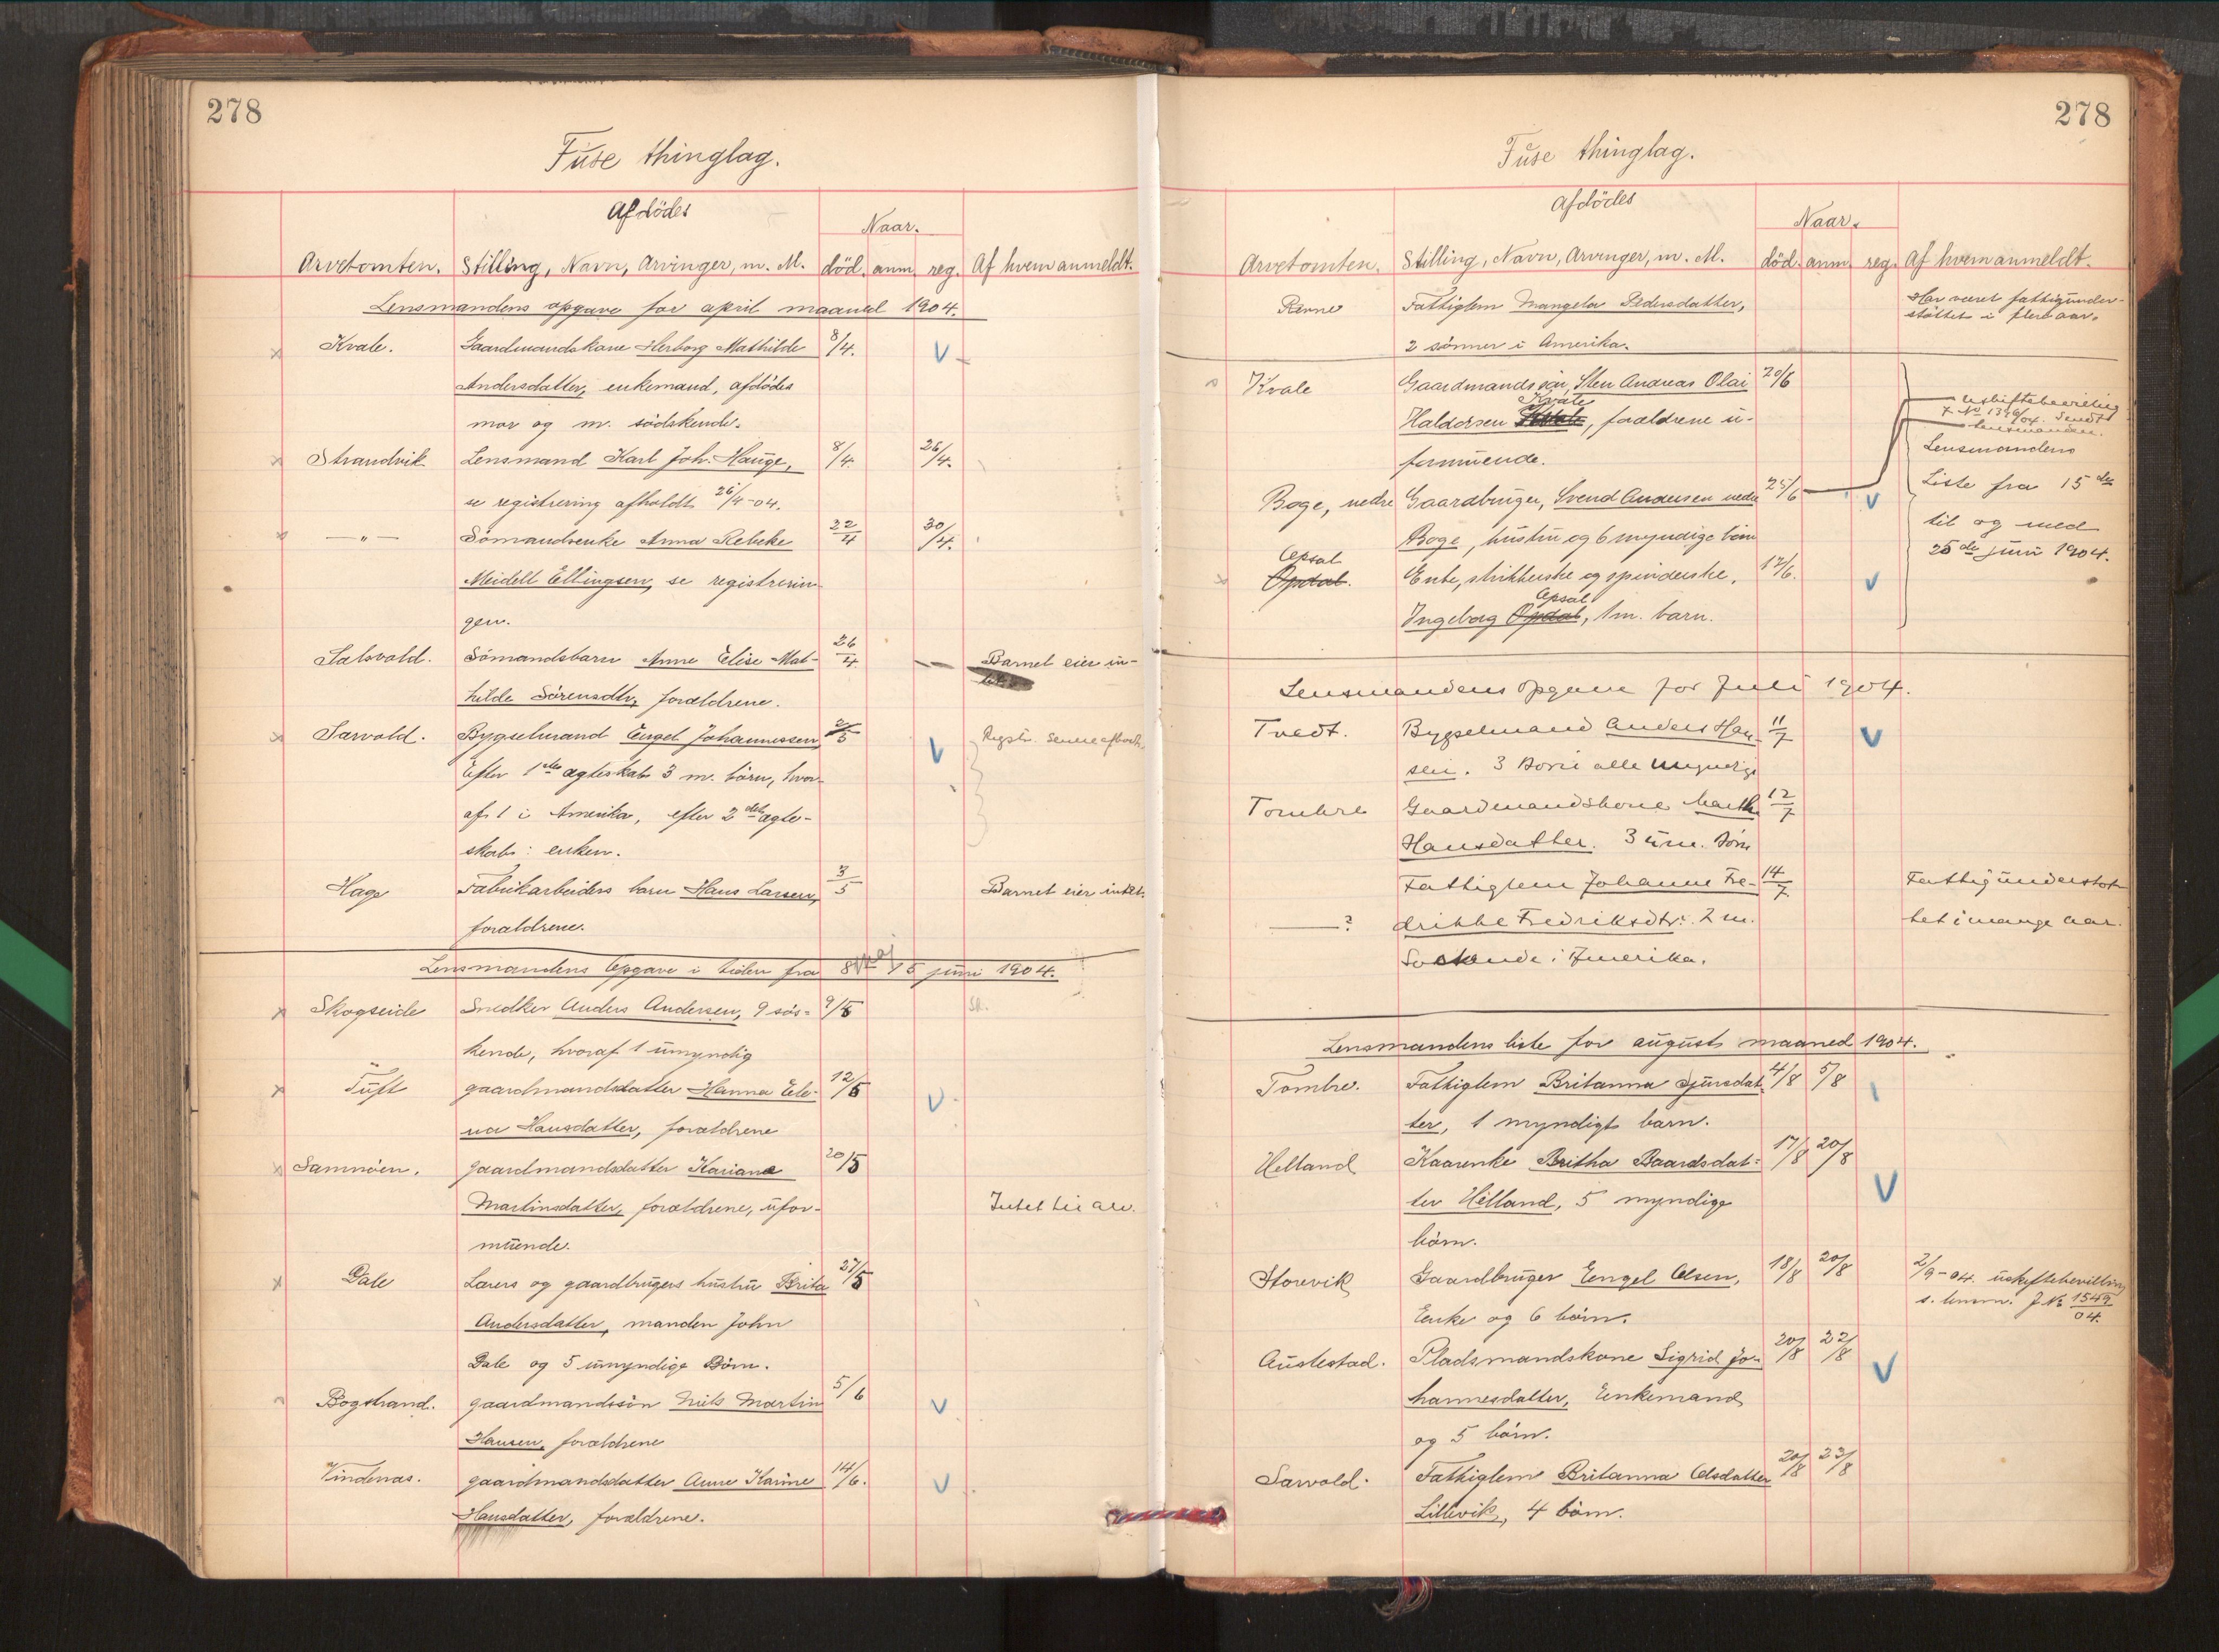 278
Fuse thinglag.
Afdödes
Naar.
Arvetomten. Stilling, Navn, Arvinger, m. M. död. anm. reg. Af hvem anmeldt.
Lensmandens opgave for april maaned 1904.
Kvale. Gaardmandskone Herborg Mathilde 8/4.
Andersdatter, enkemand, afdödes
mor og m. södskende.
Strandvik Lensmand Karl Joh. Hauge, 8/4. 26/4.
se registrering afholdt 26/4-04.
—"— Sömandsenke Anna Rebekke 22/4 30/4.
Meidell Ellingsen, se registrerin-
gen.
Salsvold. Sömandsbarn Anne Elise Mat- 26/4 — Barnet eier in-
hilde Sörensdtr, forældrene.
Sævold. Bygselmand Engel Johannessen, 2/5
Efter 1ste ægteskab 3 m. börn, hvor-
af 1 i Amerika, efter 2det ægte-
skab: enken.
Hage Fabrikarbeiders barn Hans Larsen, 3/5 Barnet eier intet.
forældrene.
Lensmandens Opgave i tiden fra 8 maj 15 juni 1904.
Skogseide Snedker Anders Andersen, 9 sös= 9/5
kende, hvoraf 1 umyndig
Tuft gaardmandsdatter Hanna Ele- 12/5
na Hansdatter, forældrene
Samnöen. gaardmandsdatter Kariane 20/5
Martinsdatter, forældrene, ufor- Intet til arv.
muende.
Dale Lærers og gaardbrugers hustru Brita 27/5
Andersdatter, manden John
Dale og 5 umyndige Börn.
Bogstrand. gaardmandssön Nils Martin 5/6
Hansen, forældrene
Vindenæs. gaardmandsdatter Anne Karine 14/6.
Hansdatter, forældrene.
278
Fuse thinglag.
Afdödes
Naar.
Arvetomten. Stilling, Navn, Arvinger, m. M. död. anm. reg. Af hvem anmeldt.
Fattiglem Mangela Pedersdatter, Har været fattigunder-
stöttet i flere aar.
2 sönner i Amerika.
Kvale Gaardmandssön, Sten Andreas Olai 20/6
Kvale
Haldorsen, forældrene u-
formuende.
uskiftebevilling
Lensmanden.
Lensmandens
Liste fra 15de
til og med
25de juni 1904.
Boge, nedre Gaardbruger, Svend Andersen nedre 25/6
Boge, hustru og 6 myndige börn
Opsal
Opdal. Enke, strikkerske og spinderske, 17/6.
Opsal
Ingeborg Opdal, 1 m. barn.
Lensmandens Opgave for Juli 1904.
Tvedt. Bygselmand Anders Han- 11/7
sen. 3 Börn alle umyndige
Tombre Gaardmandskone Marthe 12/7
Hansdatter. 3 um. Börn
Fattiglem Johanne Fre- 14/7 Fattigunderstöt-
——? drikke Fredriksdtr: 2 m. tet i mange aar.
Söskende i Amerika.
Lensmandens liste for august maaned 1904.
Tombre. Fattiglem Britanna Sjursdat- 4/8 5/8
ter, 1 myndigt barn.
Helland Kaarenke Britha Baardsdat= 17/8 20/8
ter Helland, 5 myndige
börn.
Storevik Gaardbruger Engel Olsen, 18/8 20/8 2/9-04. uskiftebevilling
s. lensm. J No 1549/04.
Enke og 6 börn.
Austestad. Pladsmandskone Sigrid Jo- 20/8 22/8
hannesdatter, Enkemand
og 5 börn.
Sævold. Fattiglem Britanna Olsdatter 20/8 23/8
Lillevik, 4 börn.